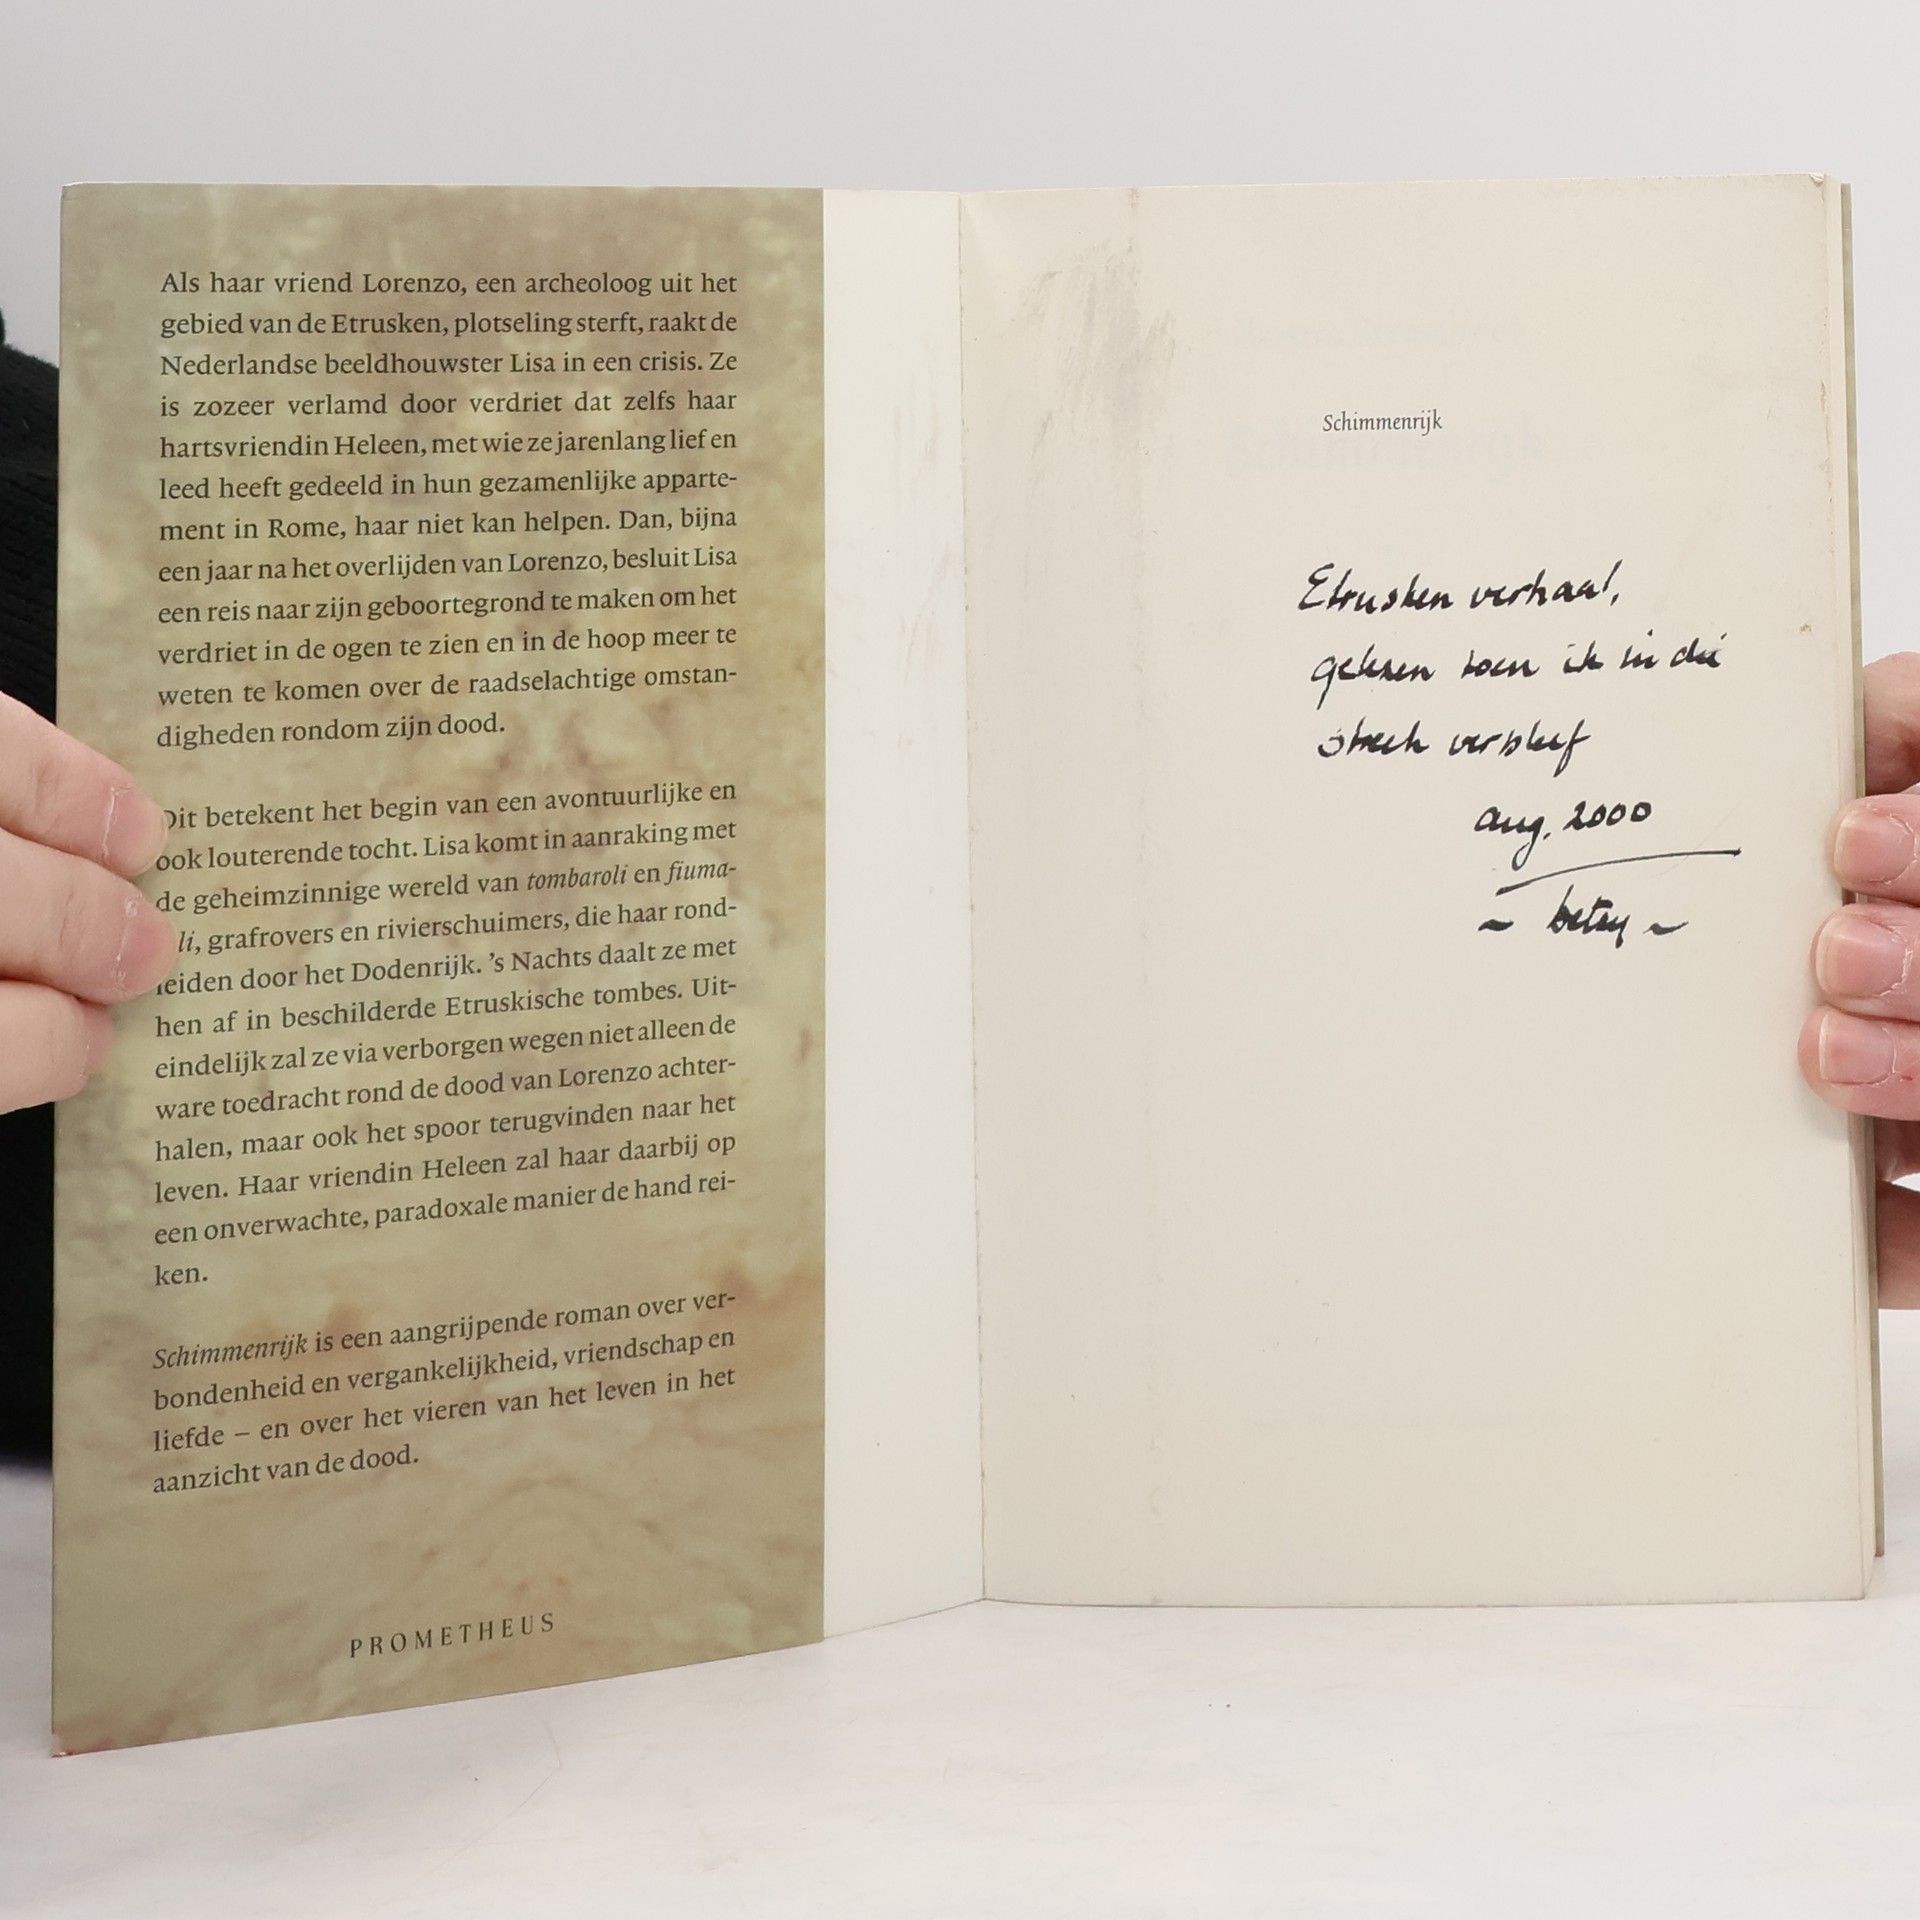 Als haar vriend Lorenzo, een archeoloog uit het
gebied van de Etrusken, plotseling sterft, raakt de
Nederlandse beeldhouwster Lisa in een crisis. Ze
is zozeer verlamd door verdriet dat zelfs haar
hartsvriendin Heleen, met wie ze jarenlang lief en
leed heeft gedeeld in hun gezamenlijke apparte-
ment in Rome, haar niet kan helpen. Dan, bijna
een jaar na het overlijden van Lorenzo, besluit Lisa
een reis naar zijn geboortegrond te maken om het
verdriet in de ogen te zien en in de hoop meer te
weten te komen over de raadselachtige omstan-
digheden rondom zijn dood.
Dit betekent het begin van een avontuurlijke en
ook louterende tocht. Lisa komt in aanraking met
de geheimzinnige wereld van tombaroli en fiuma-
li, grafrovers en rivierschuimers, die haar rond-
leiden door het Dodenrijk. 's Nachts daalt ze met
hen af in beschilderde Etruskische tombes. Uit-
eindelijk zal ze via verborgen wegen niet alleen de
ware toedracht rond de dood van Lorenzo achter-
halen, maar ook het spoor terugvinden naar het
leven. Haar vriendin Heleen zal haar daarbij op
een onverwachte, paradoxale manier de hand rei-
ken.
Schimmenrijk is een aangrijpende roman over ver-
bondenheid en vergankelijkheid, vriendschap en
liefde – en over het vieren van het leven in het
aanzicht van de dood.
PROMETHEUS
Schimmenrijk
Etrusken verhaal,
gelezen toen ik in die
streek verbleef
aug. 2000
~ betsy ~